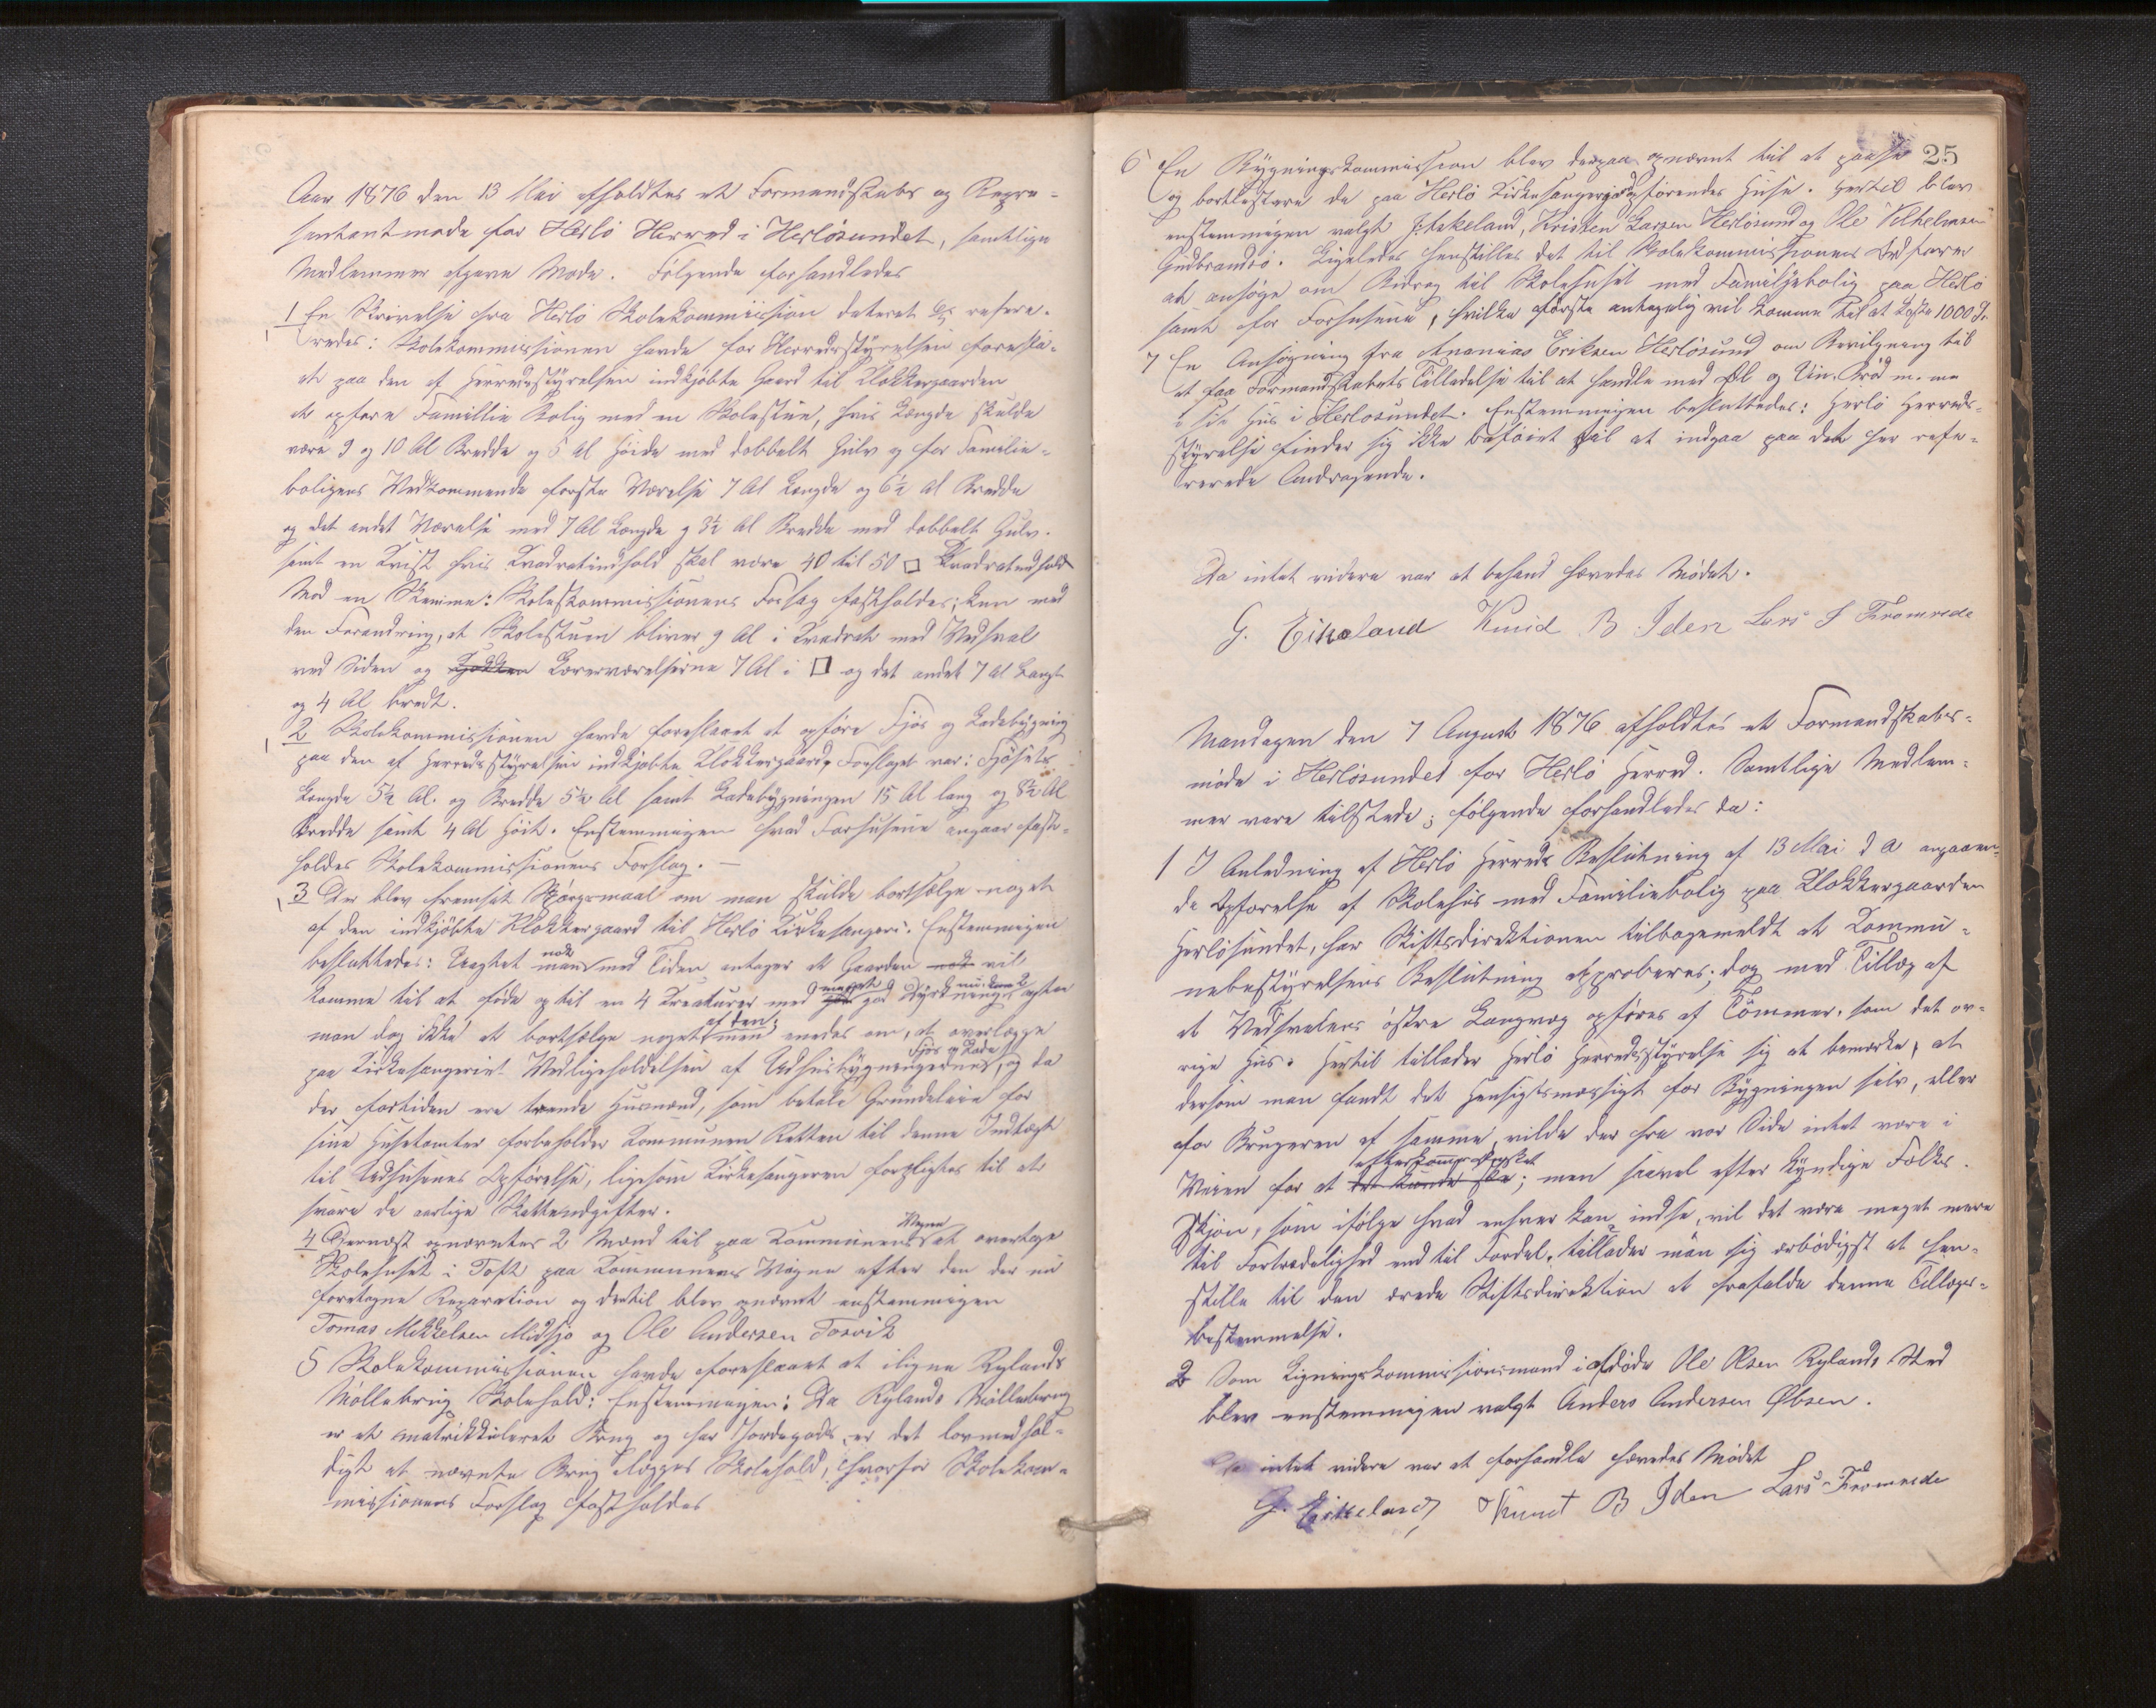 Aar 1876 den 13 Mai afholdtes et Formandskabs og Repræ-
sentantmøde for Herlö Herred i Herlösundet, samtlige
Medlemmer afgave Møde. Følgende forhandledes
1 En Skrivelse fra Herlö Skolekommission dateret refere-
redes: Skolekommissionen havde for Herredsstyrelsen foreslå-
et paa den af Herredsstyrelsen indkjöbte Gaard til Klokkergaarden
at opføre Familie Bolig med en Skolestue, hvis Længde skulde
være 9 og 10 Al Bredde og 5 Al Höide med dobbelt Gulv og for Familie-
boligens Vedkommende første Værelse 7 Al Længde og 6½ Al Bredde
og det andet Værelse med 7 Al Længde og 3½ Al Bredde med dobbelt Gulv.
samt en Kvist hvis Kvadratindhold skal være 40 til 50 □ Kvadratindhold
Mod en Stemme: Skolekommissionens Forslag fastholdes; kun med
den Forandring, at Skolestuen bliver 9 Al i Kvadrat med Vedsval
ved Siden og Kjøkken Lærerværelserne 7 Al i □ og det andet 7 Al Langt
og 4 Al bredt.
2 Skolekommissionen havde foreslaaet at opføre Fjös og Ladebygning
paa den af Herredsstyrelsen indkjöbte Klokkergaard, Forslaget var: Fjösets
Længde 5½ Al. og Bredde 5½ Al samt Ladebygningen 15 Al lang og 8½ Al
Bredde samt 4 Al Höit. Enstemmigen hvad Forhusene angaar fast-
holdes Skolekommissionens Forslag. —
3 Der blev fremsat Spørgsmaal om man skulde bortsælge noget
af den indkjöbte Klokkergaard til Herlö Kirkesangeri. Enstemmigen
besluttedes: Uagtet man nok med Tiden antager at Gaarden nok vil
komme til at föde op til en 4 Kreaturer med meget god
man dog ikke at bortsælge noget af den; men enedes om, at overlægge
paa Kirkesangeriet Vedligeholdelsen af Udhusbygningerne Fjös og Lade, og da
der fortiden ere trende Husmænd, som betale Grundeleie for
sine Husetomter forbeholder Kommunen Retten til denne Indtægt
til Udhusenes Opførelse, ligesom Kirkesangeren forpligtes til at
svare de aarlige Skatteudgifter.
4 Dernæst opnævntes 2 Mænd til paa Kommunens Vegne at overtage
Skolehuset i Toft paa Kommunens Vegne efter den der nu
foretagne Reparation og dertil blev opnævnt enstemmigen
Tomas Mikkelsen Midsjö og Ole Andersen Tosvik
5 Skolekommissionen havde foreslaaet at iligne Rylands
Möllebrug Skolehold: Enstemmigen: Da Rylands Möllebrug
er et matrikkuleret Brug og har Jordegods, er det lovmedhol-
digt at nævnte Brug ilægges Skolehold, hvorfor Skolekom-
missionens Forslag fastholdes
25
6 En Bygningskommission blev derpaa opnævnt til at paase
og bortlicitere de paa Herlö Kirkesangergaard opførendes Huse. Hertil blev
enstemmigen valgt Eikeland, Kristen Larsen Herlösund og Ole Vilhelmsen
Gudbrandsö. Ligeledes henstilles det til Skolekommissionens Ordfører
at ansöge om Bidrag til Skolehuset med Familjebolig paa Herlö
samt for Forhusene, hvilke første antagelig vil komme til at koste 1000 Sp.
7 En Ansögning fra Ananias Eriksen Herlösund om Bevilgning til
at faa Formandskabets Tilladelse til at handle med Öl og Vin. Bröd m. m.
i sit Hus i Herlosundet. Enstemmigen besluttedes: Herlö Herreds-
styrelse finder sig ikke beföiet til at indgaa paa det her refe-
rerede Andragende.
Da intet videre var at behand hævedes Mödet.
G. Eikeland Knud B. Iden Lars J Fromrede
Mandagen den 7 August 1876 afholdtes et Formandskabs-
möde i Herlösundet for Herlö Herred. Samtlige Medlem-
mer vare tilstede; følgende forhandledes da:
1 I Anledning af Herlö Herreds Beslutning af 13 Mai d a angaaen-
de Opførelse af Skolehus med Familiebolig paa Klokkergaarden
Herlösundet, har Stiftsdirektionen tilbagemeldt at Kommu-
nebestyrelsens Beslutning approberes; dog med Tillæg af
at Vedsvalens östre Langvæg opføres af Tömmer, som det øv-
rige Hus. Hertil tillader Herlö Herredsstyrelse sig at bemærke, at
dersom man fandt det Hensigtsmæssigt for Bygningen selv, eller
for Brugeren af samme, vilde der fra vor Side intet være i
Veien for at det kunde ske efterkomme Ønsket; men saavel efter kyndige Folks
Skjön, som ifølge hvad enhver kan indse, vil det være meget mere
til Fortrædelighed end til Fordel, tillader man sig ærbødigst at hen-
stille til den ærede Stiftsdirektion at frafalde denne Tillægs-
bestemmelse.
2 Som Ligningskommissionsmand i afdøde Ole Olsen Rylands Sted
blev enstemmigen valgt Anders Andersen Øbsen.
Da intet videre var at forhandle hævedes Mödet
G. Eikeland Knud B Iden Lars Fromrede